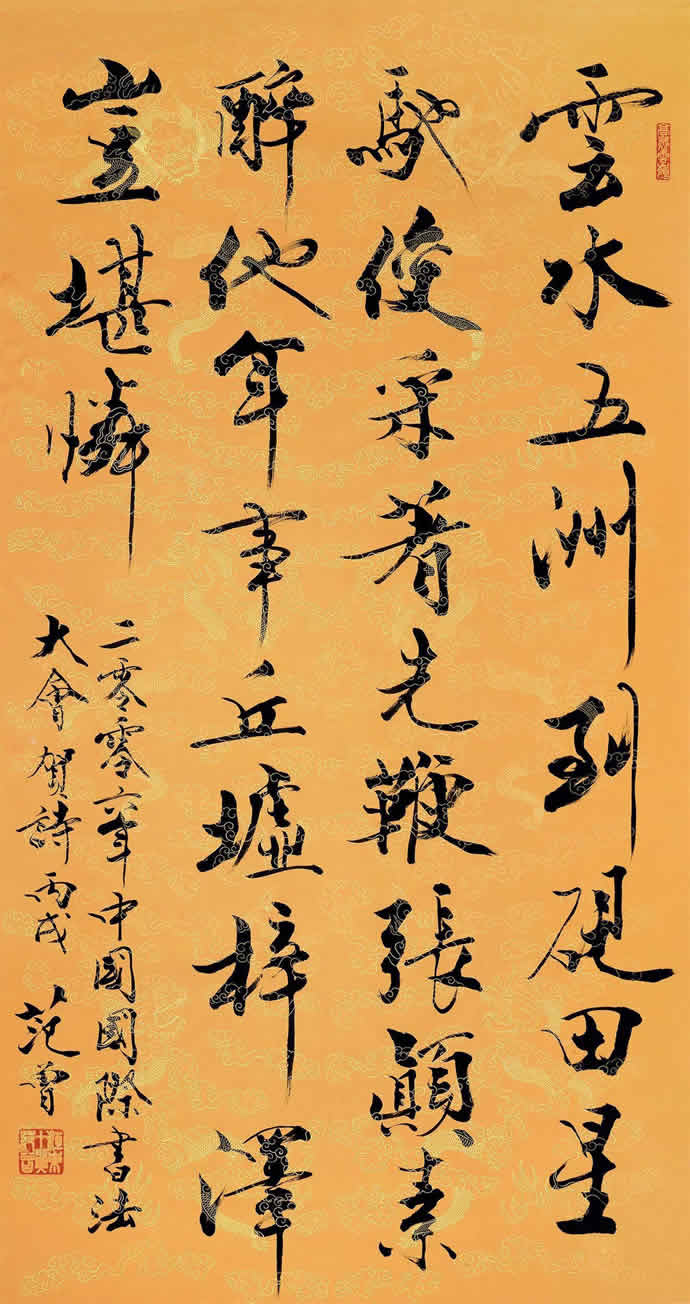 雲水五洲到硯田星
馳俊采着先鞭張顛素
醉他年事丘墟梓澤
豈堪憐
二零零六年中國國際書法
大會賀詩丙戌范曾